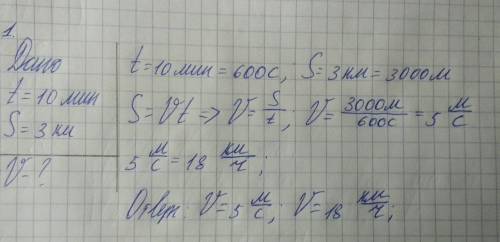 1.
Дано
t = 10 мин
S = 3 км
V = ?
t = 10 мин = 600с, S = 3 км = 3000м
S = Vt => V = S/t ; V = 3000м/600с = 5 м/с
5 м/с = 18 км/ч ;
Ответ: V = 5 м/с ; V = 18 км/ч ;